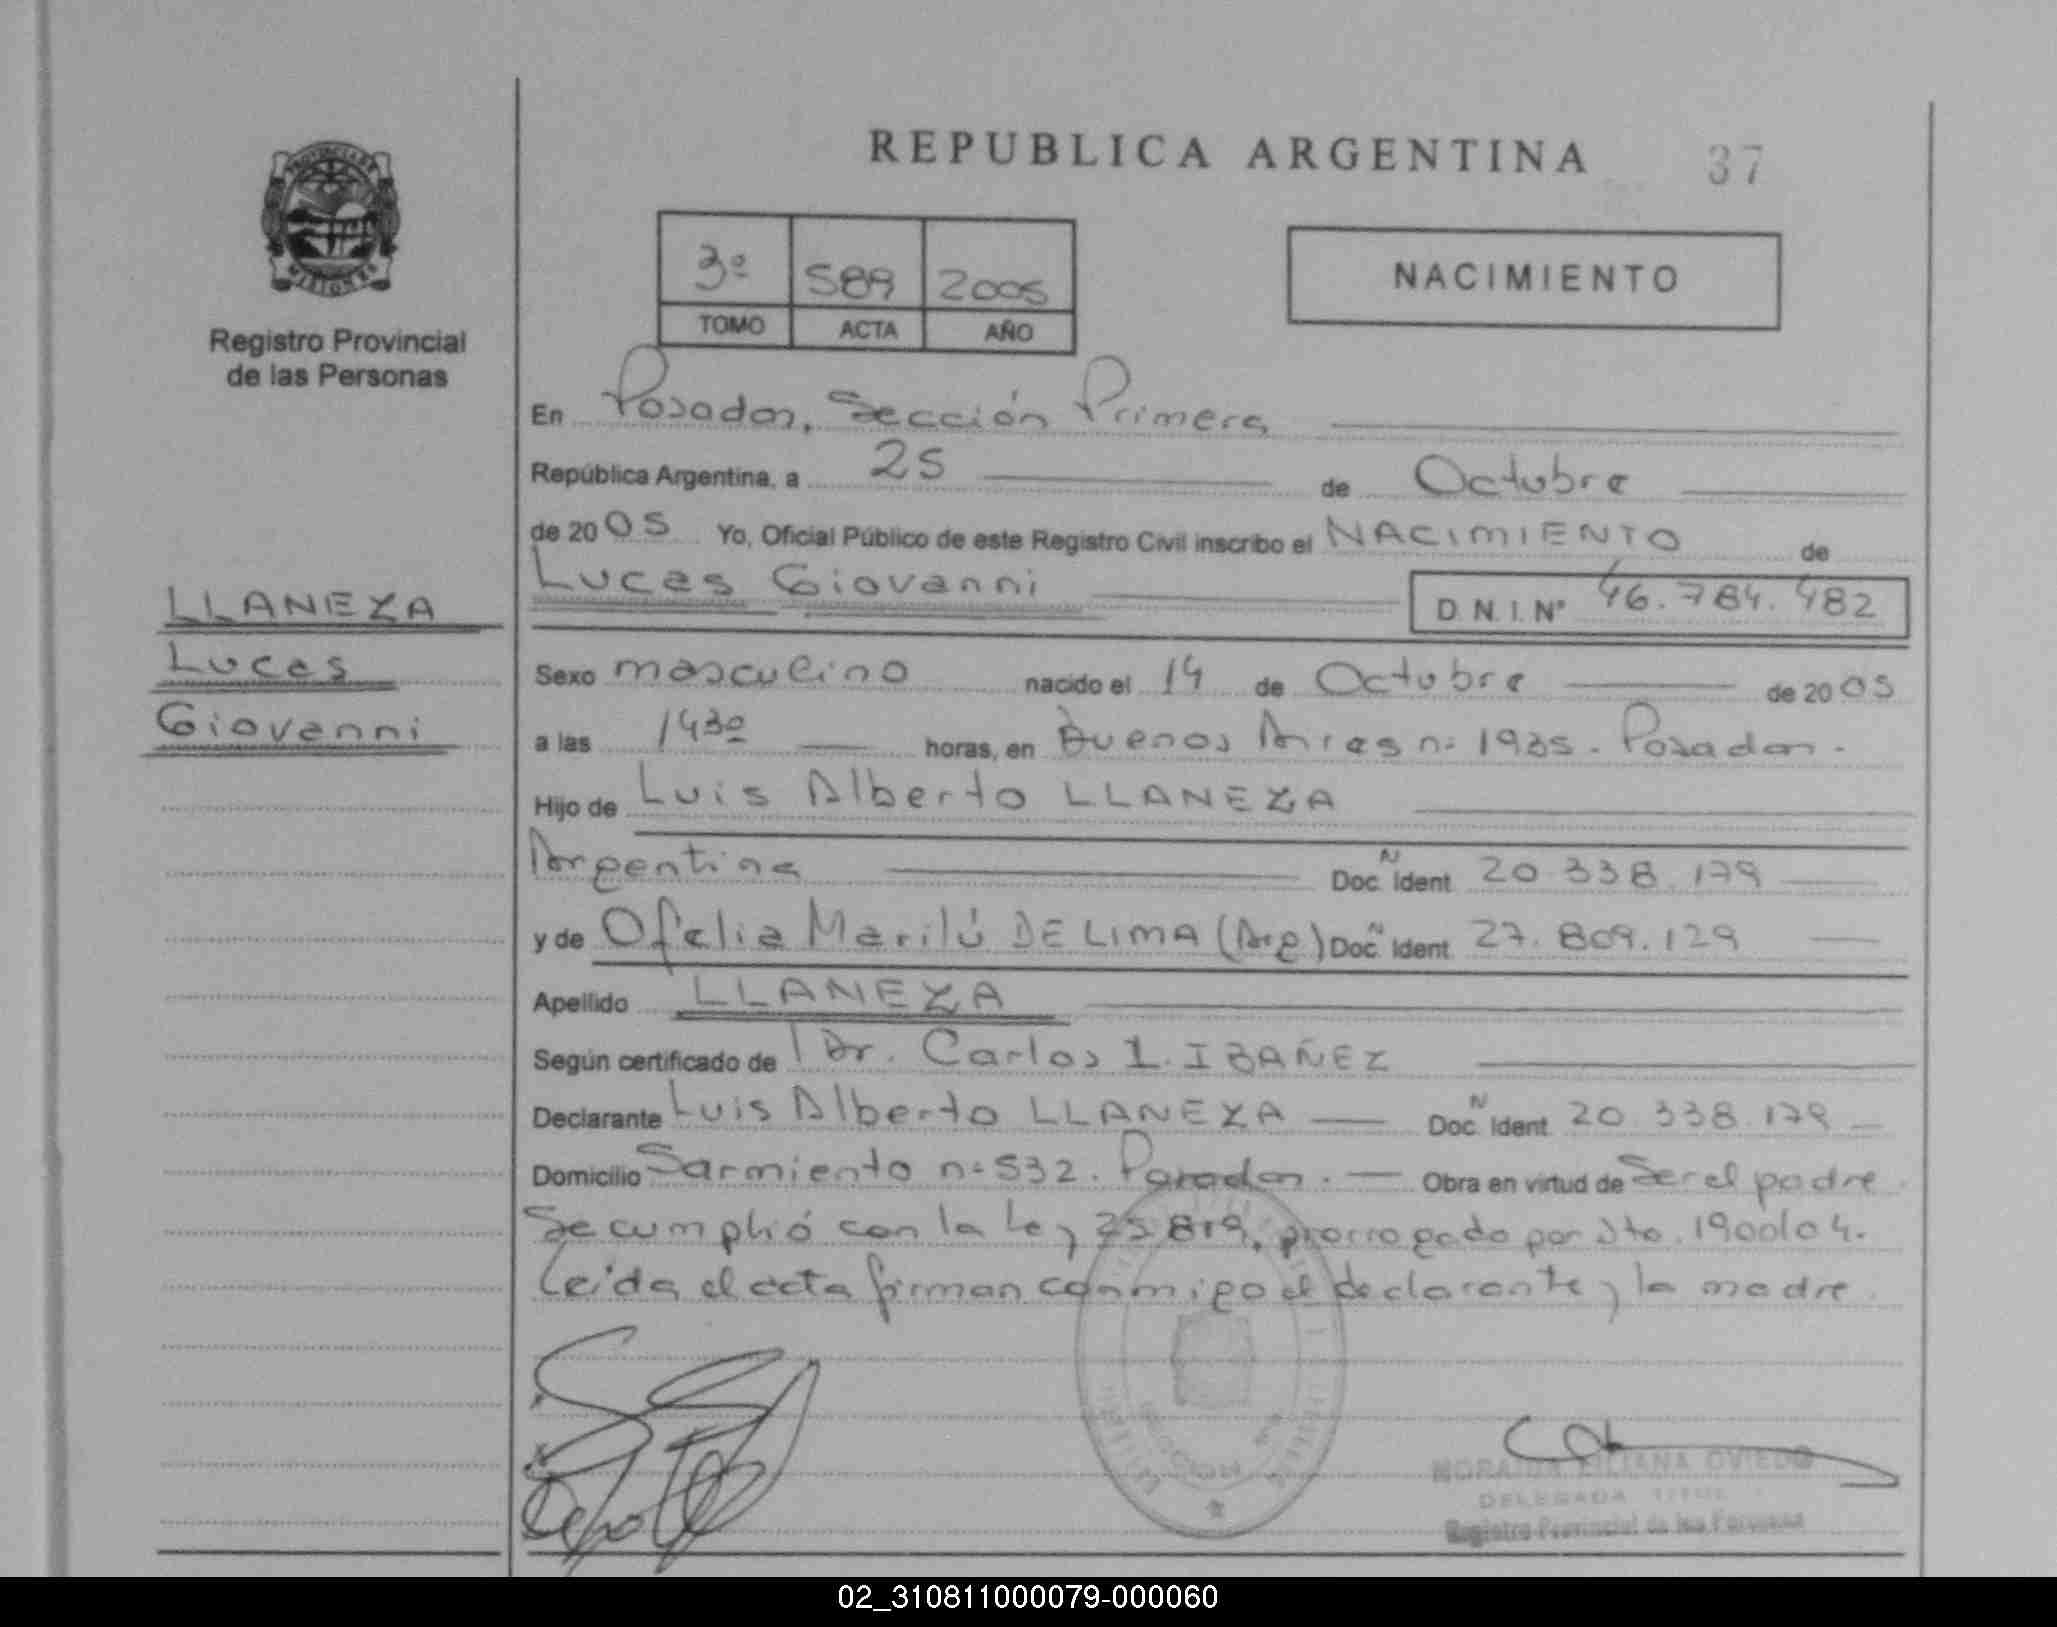 REPUBLICA ARGENTINA 37
PROVINCIA DE
MISIONES
Registro Provincial
de las Personas
3º 589 2005
TOMO ACTA AÑO
NACIMIENTO
En Posadas, Sección Primera
República Argentina, a 25 de Octubre
de 2005 Yo, Oficial Público de este Registro Civil inscribo el NACIMIENTO de
Lucas Giovanni D.N.I.Nº 46.784.482
LLANEZA
Lucas
Giovanni
Sexo masculino nacido el 14 de Octubre de 2005
a las 1430 horas, en Buenos Aires nº 1935. Posadas.
Hijo de Luis Alberto LLANEZA
Argentina Doc. N Ident 20.338.179
y de Ofelia Marilú DE LIMA (Arg) Doc. N Ident. 27.809.129
Apellido LLANEZA
Según certificado de Dr. Carlos I. IBAÑEZ
Declarante Luis Alberto LLANEZA Doc. N Ident. 20.338.179
Domicilio Sarmiento nº 532. Posadas. Obra en virtud de Ser el padre.
Se cumplió con la Ley 25.819, prorrogado por dto. 1900/04.
Leída el acta firman conmigo el declarante y la madre.
LILIANA OVIEDO
DELEGADA TITULAR
Registro Provincial de las Personas
02_310811000079-000060